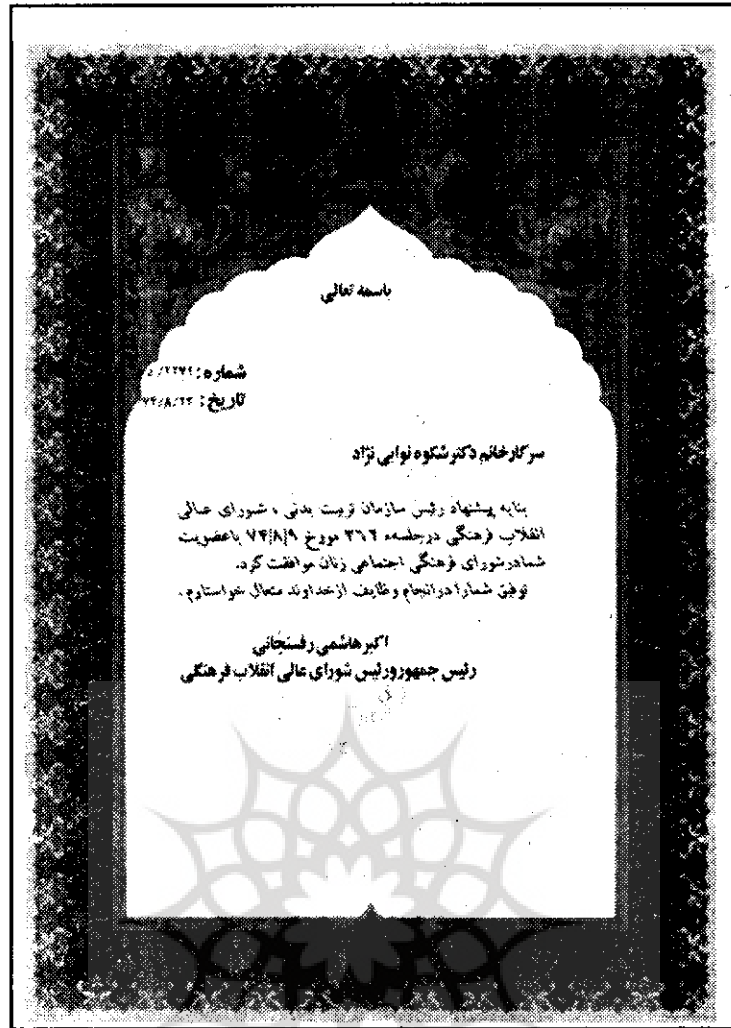 باسمه تعالی
شماره: ۲۲۷۲/د
تاریخ: ۷۴/۸/۲۳
سرکار خانم دکتر شکوه نوابی نژاد
بنابه پیشنهاد رئیس سازمان تربیت بدنی، شورای عالی
انقلاب فرهنگی درجلسه ۳۶۲ مورخ ۷۴/۸/۹ باعضویت
شمادرشورای فرهنگی اجتماعی زنان موافقت کرد.
توفیق شمارا درانجام وظایف ازخداوند متعال خواستارم.
اکبر هاشمی رفسنجانی
رئیس جمهورورئیس شورای عالی انقلاب فرهنگی